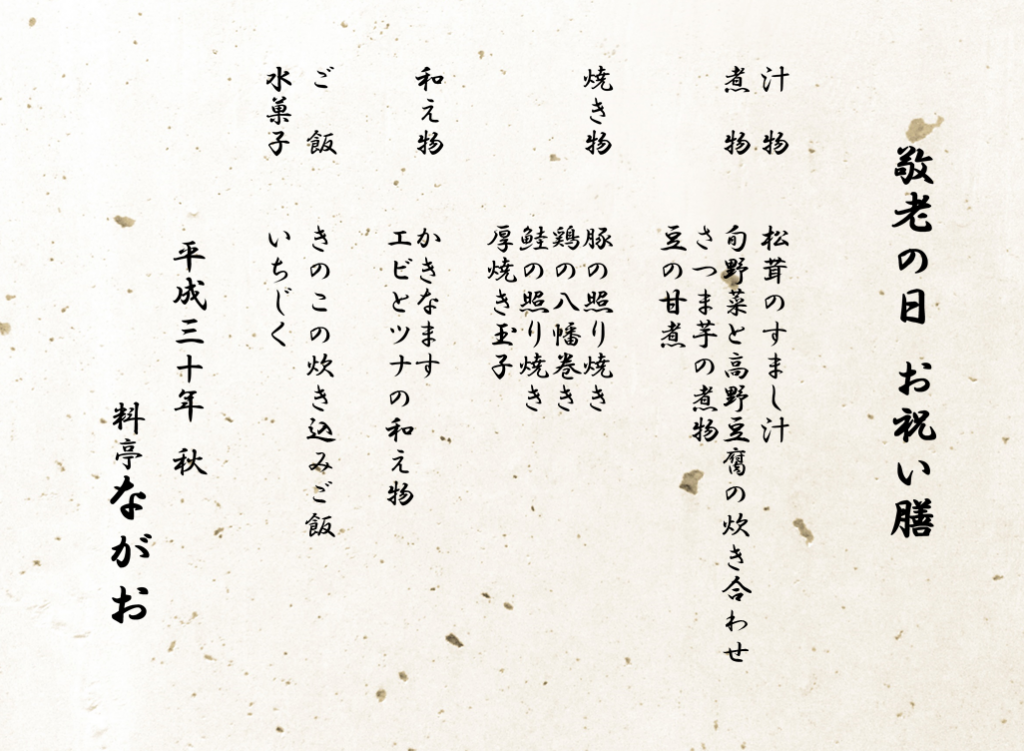 敬老の日 お祝い膳
汁 物 松茸のすまし汁
煮 物 旬野菜と高野豆腐の炊き合わせ
さつま芋の煮物
豆の甘煮
焼き物 豚の照り焼き
鶏の八幡巻き
鮭の照り焼き
厚焼き玉子
和え物 かきなます
エビとツナの和え物
ご 飯 きのこの炊き込みご飯
水菓子 いちじく
平成三十年 秋
料亭ながお